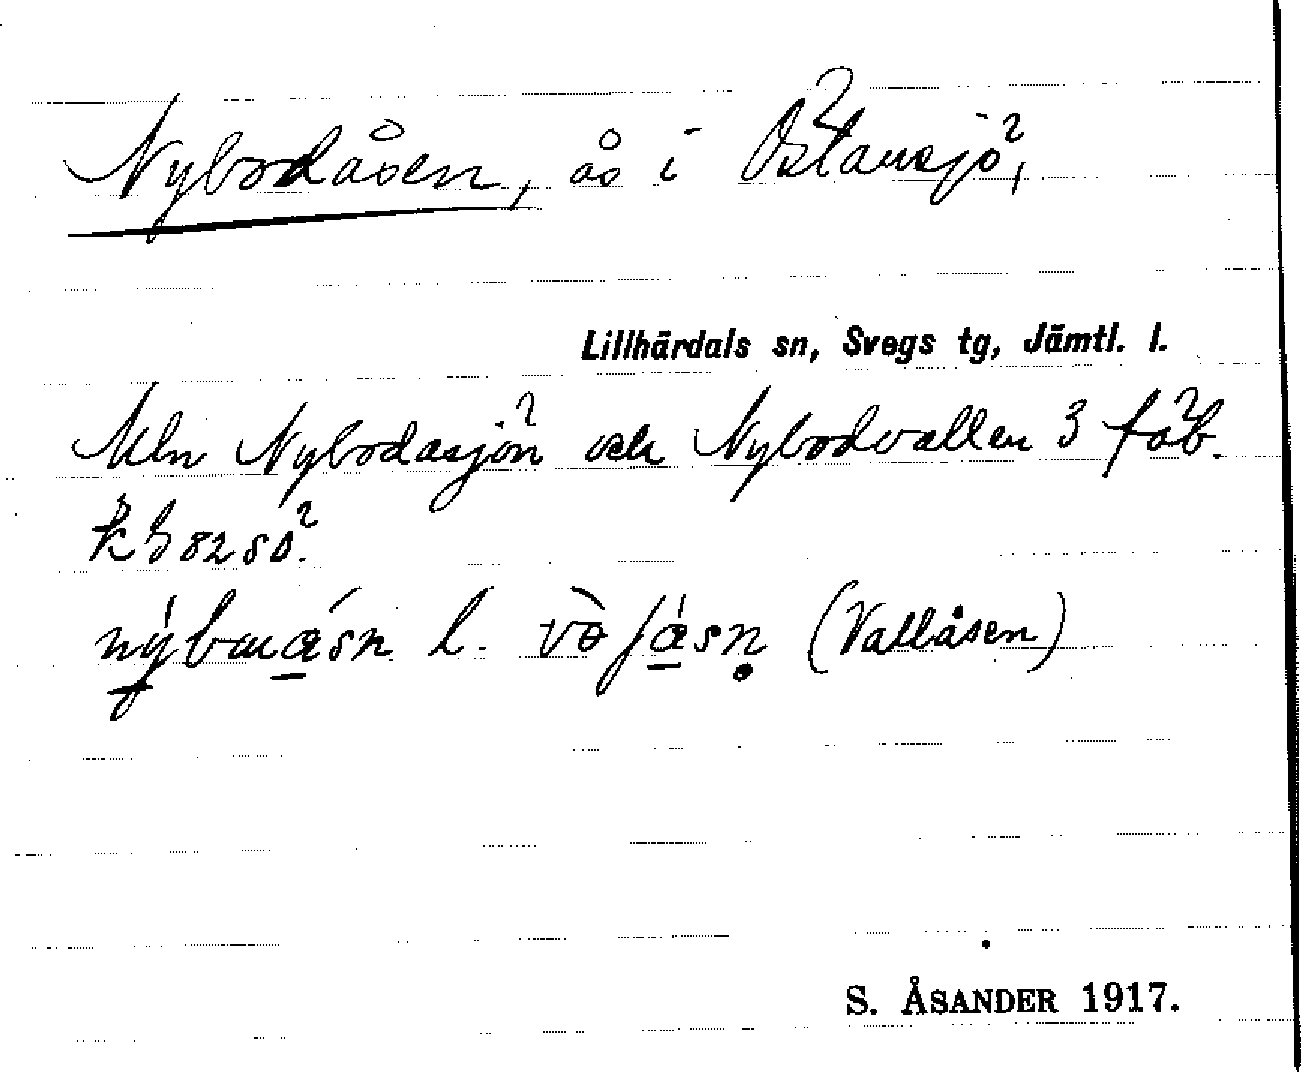 Nybodåsen, ås i Östansjö,
Lillhärdals sn, Svegs tg, Jämtl. l.
Mln Nybodasjön och Nybodvallen 3 fäb.
82 SO.
l. (Vallåsen)
S. ÅSANDER 1917.